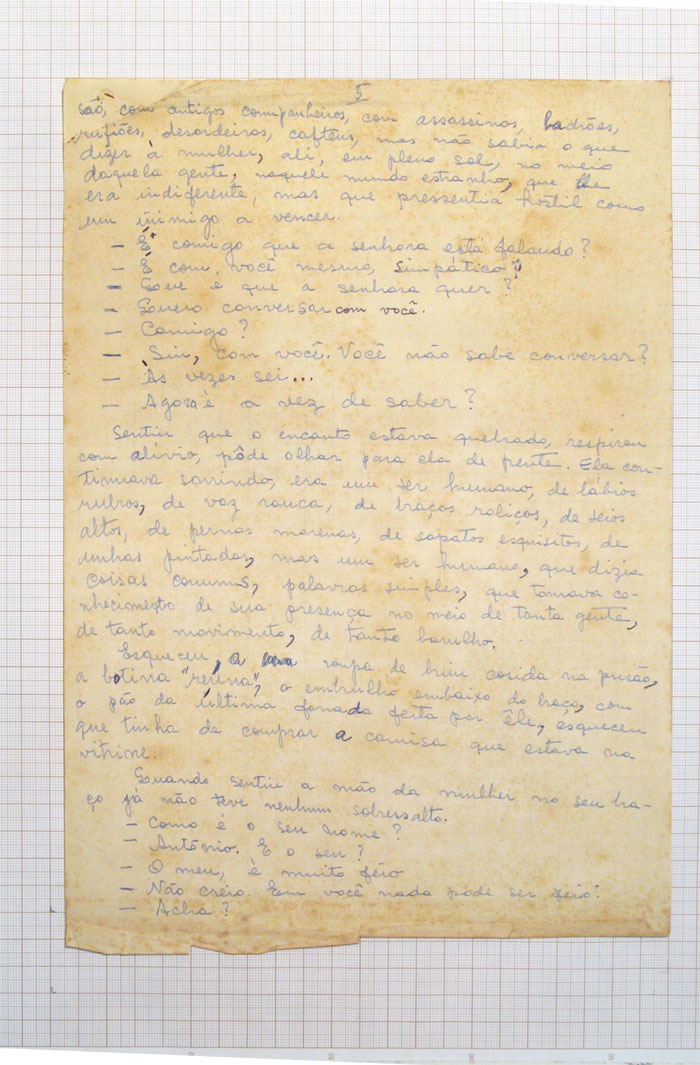 5
são, com antigos companheiros, com assassinos, ladrões,
rufiões, desordeiros, caftens, mas não sabia o que
dizer à mulher, ali, em pleno sol, no meio
daquela gente, naquele mundo estranho, que lhe
era indiferente, mas que pressentia hostil como
um inimigo a vencer.
— É comigo que a senhora está falando?
— É com você mesmo, simpático!
— Que é que a senhora quer?
— Quero conversar com você.
— Comigo?
— Sim, com você. Você não sabe conversar?
— Às vezes sei...
— Agora é a vez de saber?
Sentiu que o encanto estava quebrado, respirou
com alívio, pôde olhar para ela de frente. Ela con-
tinuava sorrindo, era um ser humano, de lábios
rubros, de voz rouca, de braços roliços, de seios
altos, de pernas morenas, de sapatos esquisitos, de
unhas pintadas, mas um ser humano, que dizia
coisas comuns, palavras simples, que tomava co-
nhecimento de sua presença no meio de tanta gente,
de tanto movimento, de tanto barulho.
Esqueceu, a roupa de brim cosida na prisão,
a botina "reúna", o embrulho embaixo do braço, com
o pão da última fornada feita por êle, esqueceu
que tinha de comprar a camisa que estava na
vitrine.
Quando sentiu a mão da mulher no seu bra-
ço já não teve nenhum sobressalto.
— Como é o seu nome?
— Antônio. E o seu?
— O meu, é muito feio
— Não creio. Em você nada pode ser feio.
— Acha?